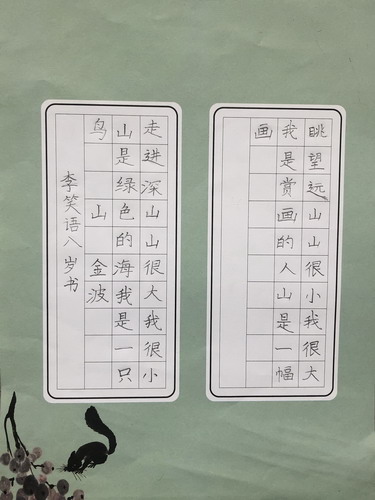 眺望远山山很小我很大
我是赏画的人山是一幅
画
走进深山山很大我很小
山是绿色的海我是一只
鸟 山 金波
李笑语八岁书